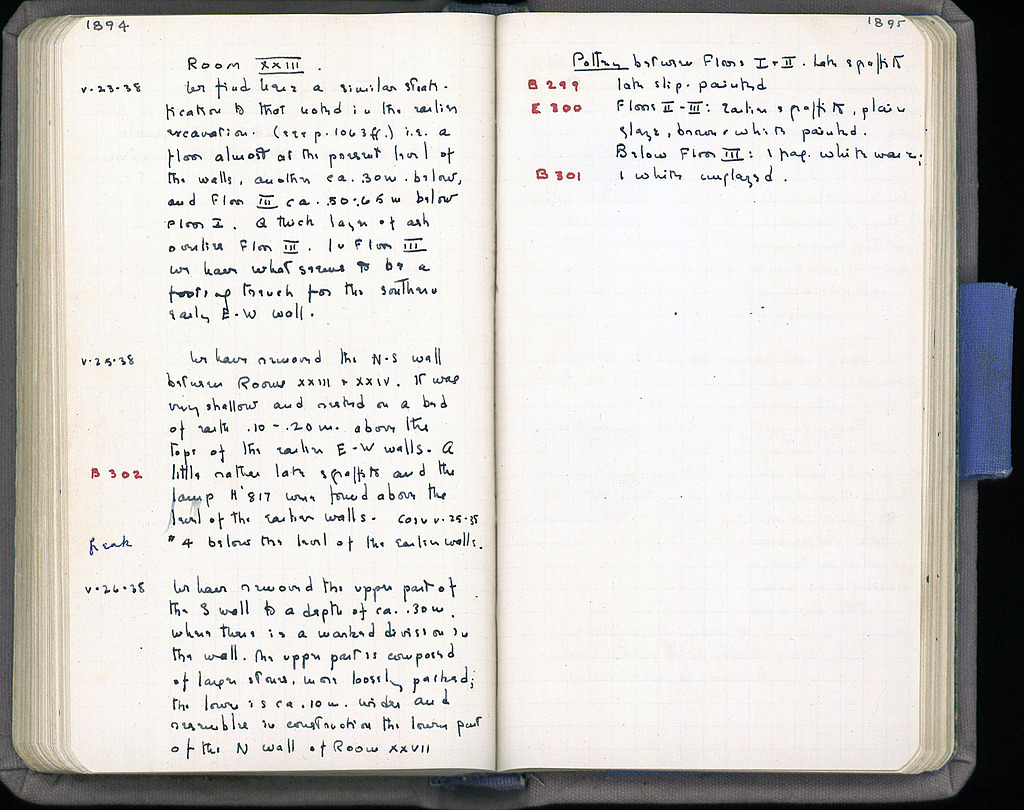 1894
Room XXIII.
V·23·38 We find here a similar strati-
fication to that noted in the earlier
excavation. (see p. 1063 ff.) i.e. a
floor almost at the present level of
the walls, another ca. .30 m. below,
and Floor III ca. .50-.65 m below
Floor I. A thick layer of ash
overlies Floor III. In Floor III
we have what seems to be a
footing trench for the southern
early E-W wall.
V·25·38 We have removed the N-S wall
between Rooms XXIII + XXIV. It was
very shallow and rested on a bed
of earth .10 - .20 m. above the
tops of the earlier E-W walls. A
B 302 little rather late sgraffito and the
lamp H'817 were found above the
level of the earlier walls. Coin V·25·38
freak #4 below the level of the earlier walls.
V·26·38 We have removed the upper part of
the S wall to a depth of ca. .30 m.
where there is a marked division in
the wall. The upper part is composed
of larger stones, more loosely packed;
the lower is ca. .10 m. wider and
resembles in construction the lower part
of the N wall of Room XXVII
1895
Pottery between Floors I + II. Late sgraffito
B 299 late slip-painted
B 300 Floors II - III: earlier sgraffito, plain
glaze, brown + white painted.
Below Floor III: 1 frag. white ware;
B 301 1 white unglazed.